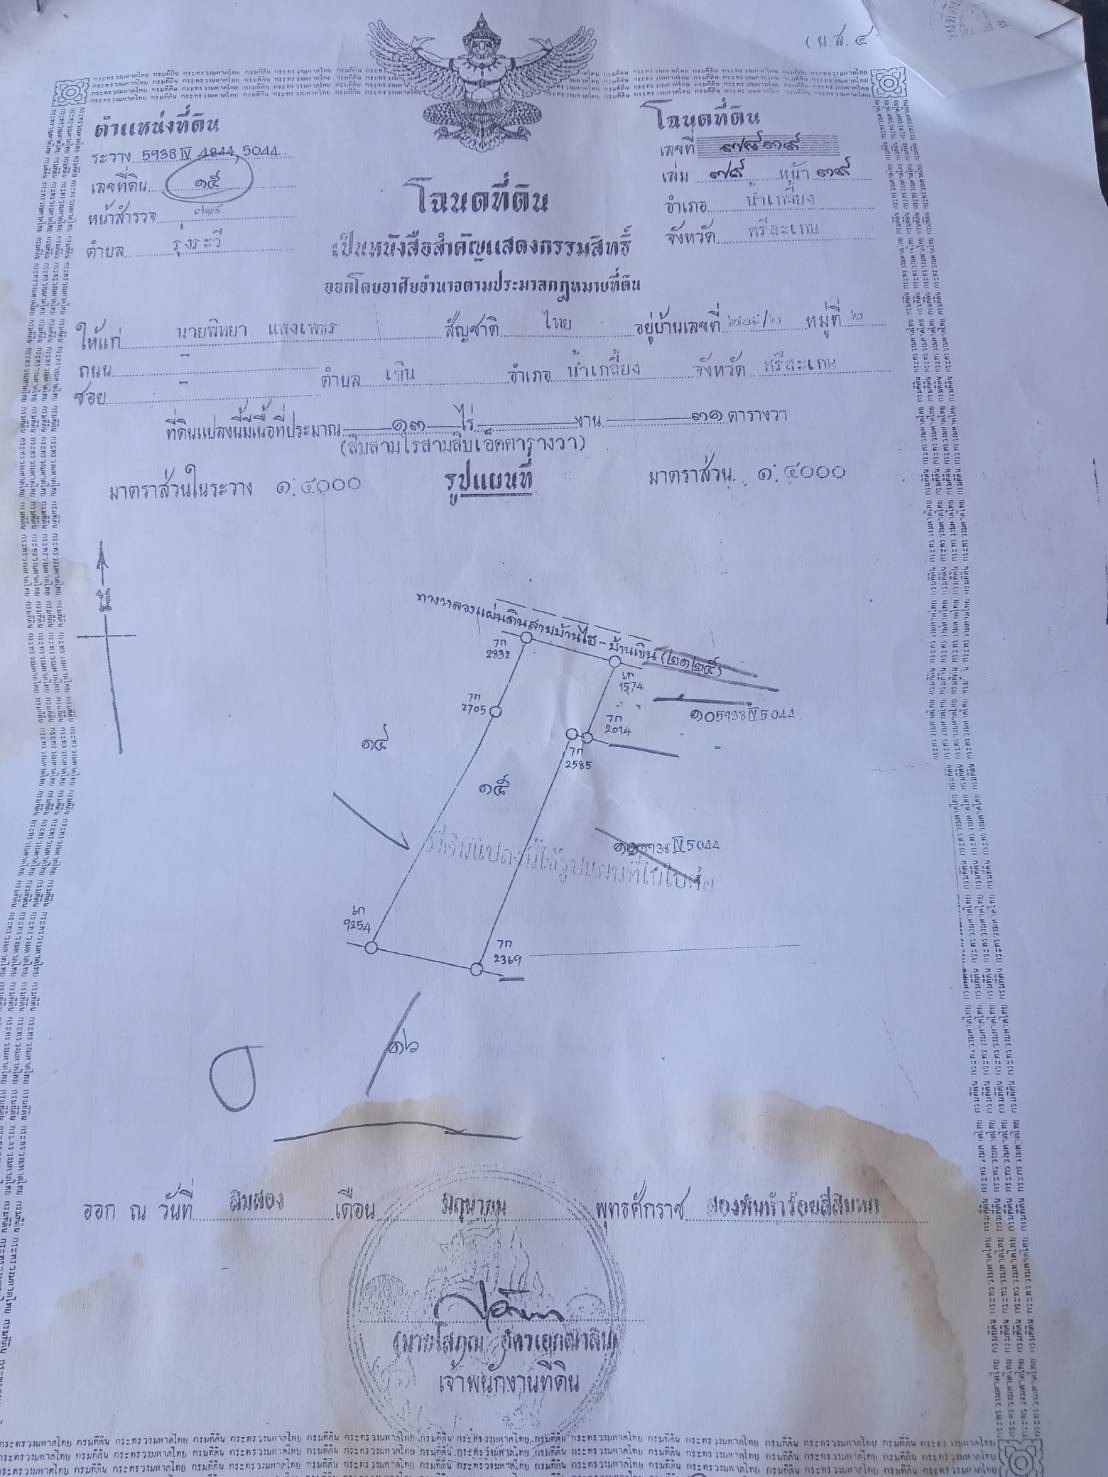 (น.ส. ๔
ตำแหน่งที่ดิน
ระวาง 5938 IV 4844, 5044
เลขที่ดิน ๑๕
หน้าสำรวจ
ตำบล รุ่งระวี
โฉนดที่ดิน
เลขที่ ๗๘๓๙
เล่ม ๗๙ หน้า ๓๙
อำเภอ น้ำเกลี้ยง
จังหวัด ศรีสะเกษ
โฉนดที่ดิน
เป็นหนังสือสำคัญแสดงกรรมสิทธิ์
ออกโดยอาศัยอำนาจตามประมวลกฎหมายที่ดิน
ให้แก่ นายพิทยา แพงเพชร สัญชาติ ไทย อยู่บ้านเลขที่ หมู่ที่ ๒
ถนน - ตำบล เขิน อำเภอ น้ำเกลี้ยง จังหวัด ศรีสะเกษ
ซอย -
ที่ดินแปลงนี้มีเนื้อที่ประมาณ ๑๓ ไร่ งาน ๓๑ ตารางวา
(สิบสามไร่สามสิบเอ็ดตารางวา)
มาตราส่วนในระวาง ๑:๔๐๐๐ รูปแผนที่ มาตราส่วน ๑:๔๐๐๐
ทางหลวงแผ่นดินสายบ้านไฮ - บ้านเขิน (๒๑๒๕)
7ก
2832
1574
7ก
2705
๑๐5938 IV 5044
7ก
2014
7ก
2585
๑๔
๑๕
5938 IV 5044
ที่ดินแปลงนี้ใช้รูปแผนที่ในใบต่อ
9254
7ก
2369
๑๖
ออก ณ วันที่ สิบสอง เดือน มิถุนายน พุทธศักราช สองพันห้าร้อยสี่สิบ
เจ้าพนักงานที่ดิน